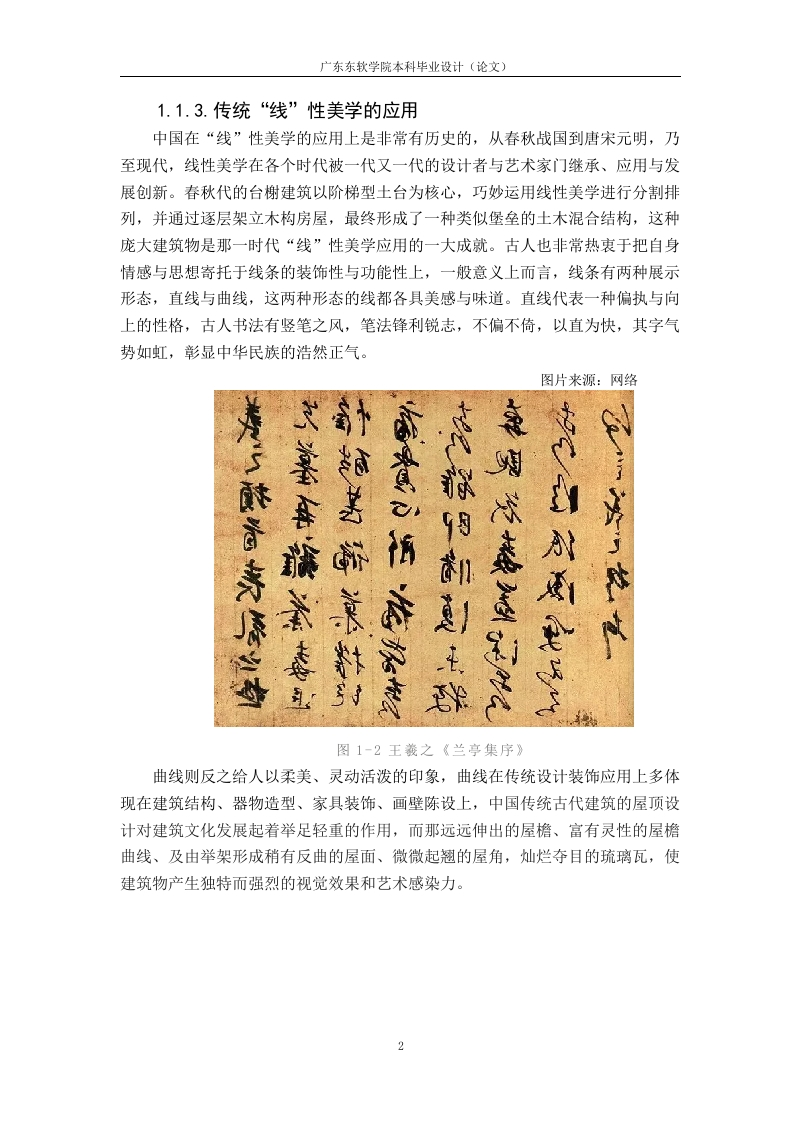 广东东软学院本科毕业设计（论文）
1.1.3.传统“线”性美学的应用
中国在“线”性美学的应用上是非常有历史的，从春秋战国到唐宋元明，乃
至现代，线性美学在各个时代被一代又一代的设计者与艺术家门继承、应用与发
展创新。春秋代的台榭建筑以阶梯型土台为核心，巧妙运用线性美学进行分割排
列，并通过逐层架立木构房屋，最终形成了一种类似堡垒的土木混合结构，这种
庞大建筑物是那一时代“线”性美学应用的一大成就。古人也非常热衷于把自身
情感与思想寄托于线条的装饰性与功能性上，一般意义上而言，线条有两种展示
形态，直线与曲线，这两种形态的线都各具美感与味道。直线代表一种偏执与向
上的性格，古人书法有竖笔之风，笔法锋利锐志，不偏不倚，以直为快，其字气
势如虹，彰显中华民族的浩然正气。
图片来源：网络
羲之頓首喪亂之極
先墓再離荼毒追
惟酷甚號慕摧絕
痛貫心肝痛當奈何
图 1-2 王羲之《兰亭集序》
曲线则反之给人以柔美、灵动活泼的印象，曲线在传统设计装饰应用上多体
现在建筑结构、器物造型、家具装饰、画壁陈设上，中国传统古代建筑的屋顶设
计对建筑文化发展起着举足轻重的作用，而那远远伸出的屋檐、富有灵性的屋檐
曲线、及由举架形成稍有反曲的屋面、微微起翘的屋角，灿烂夺目的琉璃瓦，使
建筑物产生独特而强烈的视觉效果和艺术感染力。
2